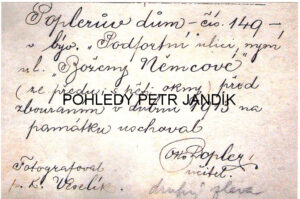 Poplerův dům – čís. 149 –
v býv. „Podfortní ulici, nyní
ul. „Boženy Němcové"
(ze předu, s pěti okny) před
zbouráním v dubnu 1913 na
POHLEDY PETR JANDÍK
památku uschoval
Fotografoval
p. K. Veselík.
Otto Popler,
učitel.
druhý zleva